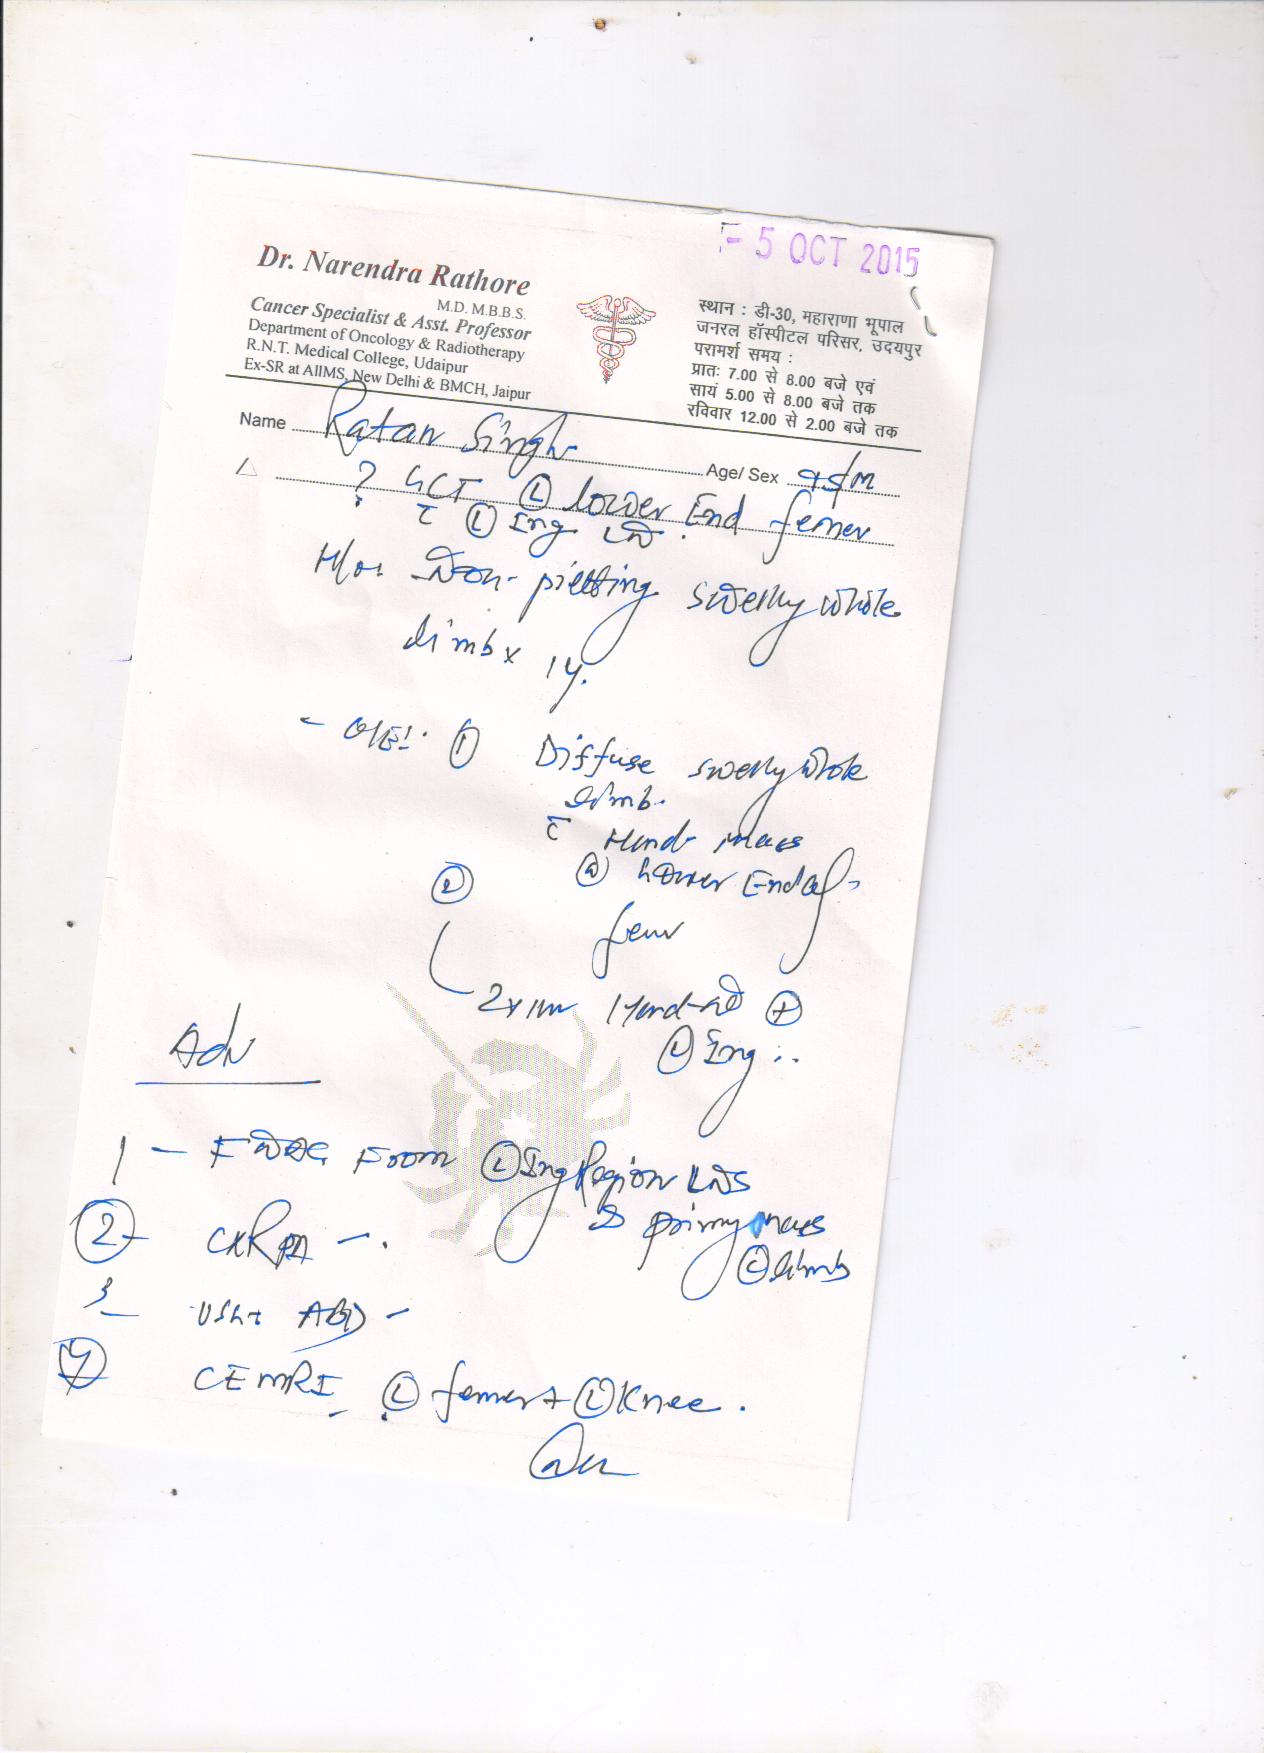 - 5 OCT 2015
Dr. Narendra Rathore
M.D. M.B.B.S.
Cancer Specialist & Asst. Professor
Department of Oncology & Radiotherapy
R.N.T. Medical College, Udaipur
Ex-SR at AIIMS, New Delhi & BMCH, Jaipur
स्थान : डी-30, महाराणा भूपाल
जनरल हॉस्पीटल परिसर, उदयपुर
परामर्श समय :
प्रातः 7.00 से 8.00 बजे एवं
सायं 5.00 से 8.00 बजे तक
रविवार 12.00 से 2.00 बजे तक
Name Ratan Singh Age/ Sex
△ ? GCT Ⓛ lower End femer
c̄ Ⓛ Ing LN.
H/o: Non-pitting swelling whole
limb x 1y.
- O/E: ① Diffuse swelling whole
limb.
c̄ Hard mass
@ Lower End of
femr
②
Hard ⊕
Ⓛ Ing
Adv
1 - From Ⓛ Ing Region LNS
& primy mass
limb
② - CXR PA -.
3 - USG ABD -
④ CEMRI Ⓛ femer + Ⓛ Knee.